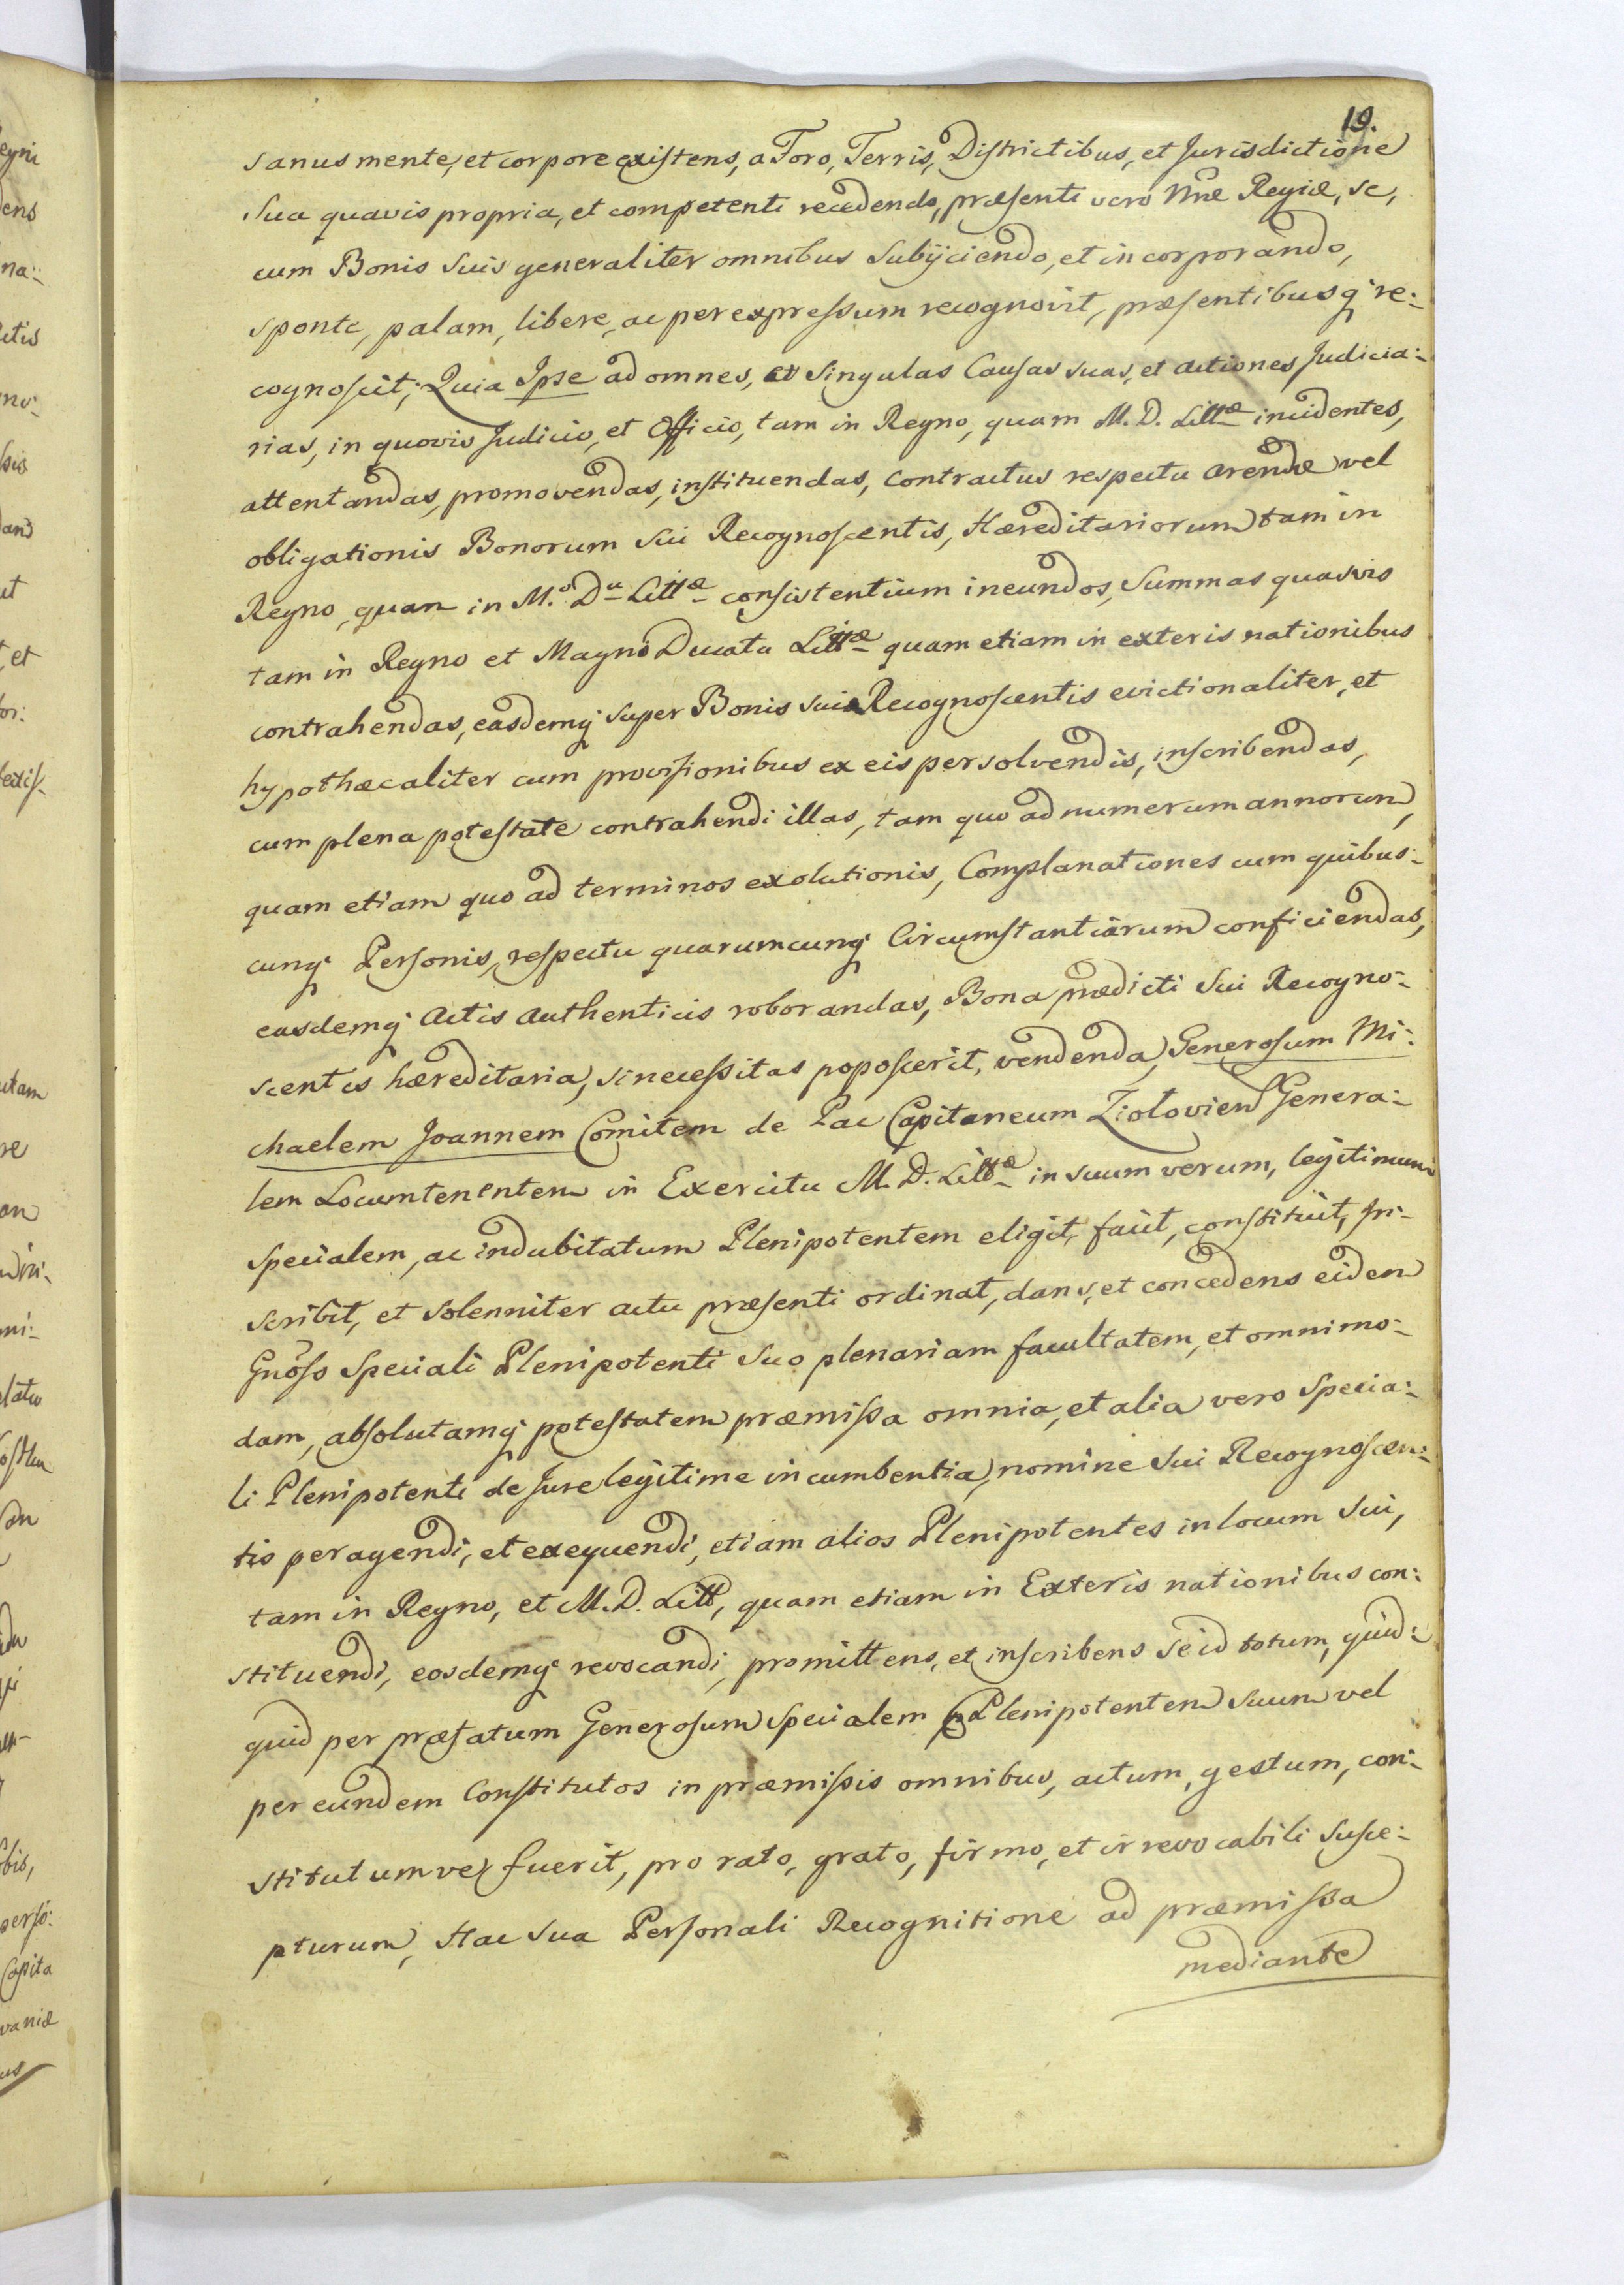 19.
sanus mente, et corpore existens, a Foro, Terris, Districtibus, et Jurisdictione
Sua quavis propria, et competenti recedendo, præsenti vero Mnæ Regiæ, se,
cum Bonis Suis generaliter omnibus Subijciendo, et incorporando,
sponte, palam, libere, ac per expressum recognovit, præsentibusq́ re:
cognoscit; Quia Ipse ad omnes, et Singulas Causas suas, et actiones Judicia:
rias, in quovis Judicio, et Officio, tam in Regno, quam M. D. Littæ incidentes,
attentandas, promovendas, instituendas, Contractus respectu arendæ vel
obligationis Bonorum Sui Recognoscentis, Hæreditariorum tam in
Regno, quam in M.o Du Littæ consistentium ineundos, Summas quasvis
tam in Regno et Magno Ducatu Littæ quam etiam in exteris nationibus
contrahendas, easdemq́ super Bonis sui Recognoscentis evictionaliter, et
hypothæcaliter cum provisionibus ex eis persolvendis, inscribendas,
cum plena potestate contrahendi illas, tam quo ad numerum annorum,
quam etiam quo ad terminos exolutionis, Complanationes cum quibus:
cunq́ Personis, respectu quarumcunq́ Circumstantiarum conficiendas,
easdemq́ Actis Authenticis roborandas, Bona prædicti Sui Recogno:
scentis hæreditaria, si necessitas poposcerit, vendenda, Generosum Mi:
chaelem Joannem Comitem de Pac Capitaneum Ziolovien Genera:
lem Locumtenentem in Exercitu M. D. Littæ in suum verum, legitimum
specialem, ac indubitatum Plenipotentem eligit, facit, constituit, in:
scribit, et solenniter actu præsenti ordinat, dans, et concedens eidem
Gnoso Speciali Plenipotenti Suo plenariam facultatem, et omnimo:
dam, absolutamq́ potestatem præmissa omnia, et alia vero Specia:
li Plenipotenti de Jure legitime incumbentia, nomine Sui Recognoscen:
tis peragendi, et exequendi, etiam alios Plenipotentes in locum Sui,
tam in Regno, et M. D. Litt, quam etiam in Exteris nationibus con:
stituendi, eosdemq́ revocandi, promittens, et inscribens Se id totum, quid:
quid per præfatum Generosum Specialem Plenipotentem Suum vel
per eundem Constitutos in præmissis omnibus, actum, gestum, con:
stitutumve fuerit, pro rato, grato, firmo, et irrevocabili Susce:
pturum, Hac Sua Personali Recognitione ad præmissa
mediante